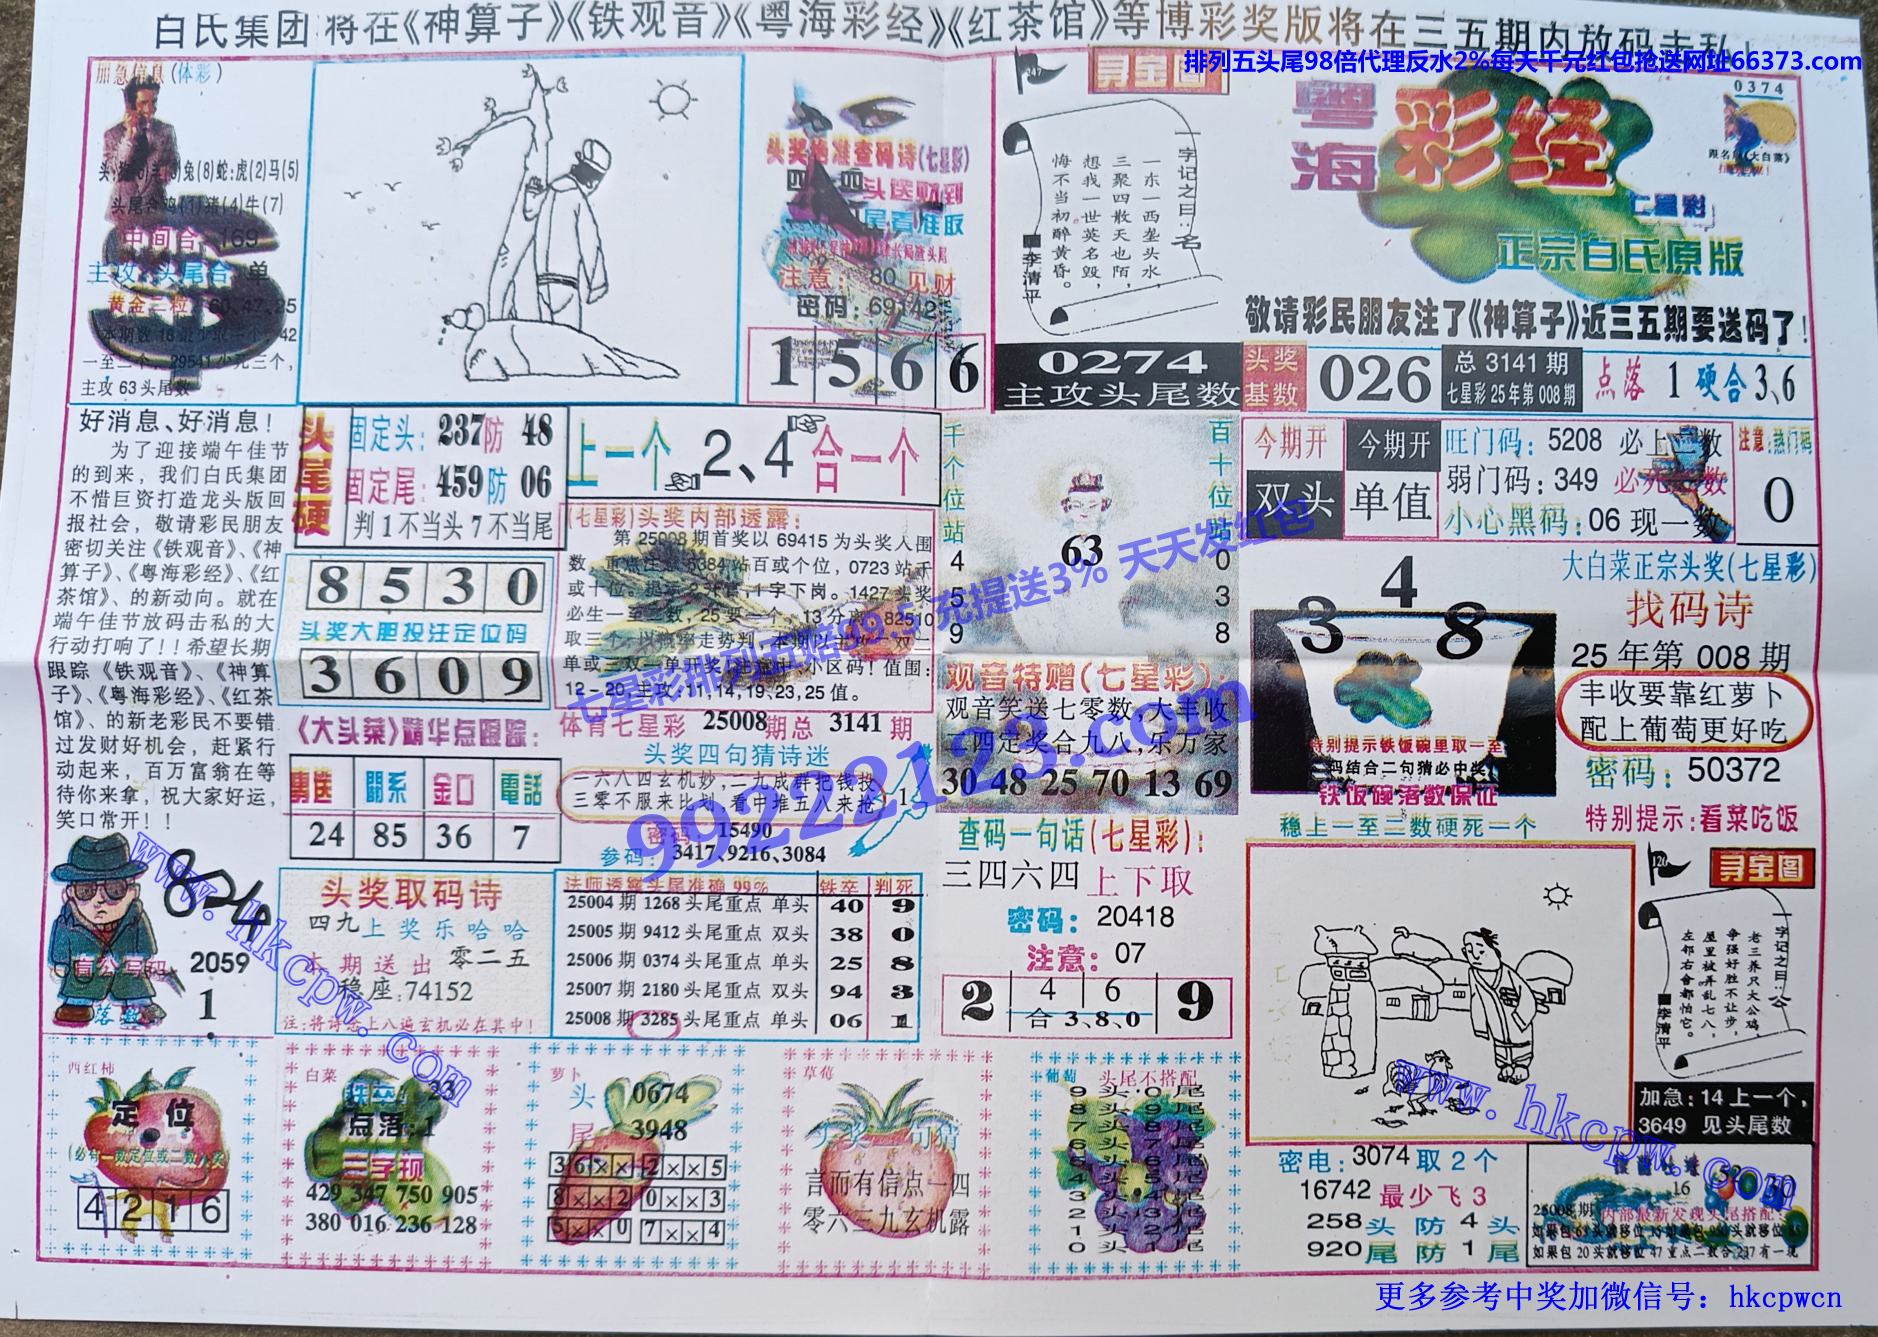 白氏集团将在《神算子》《铁观音》《粤海彩经》《红茶馆》等博彩奖版将在三五期内放码击私
排列五头尾98倍代理反水2%每天千元红包抢送网址66373.com
加急信息(体彩)
兔(8)蛇:虎(2)马(5)
头尾合鸡(1)猪(4)牛(7)
中间合:169
主攻:头尾合:单
黄金三粒:60,47,25
一至二个,29541少死三个,
主攻63头尾数
头奖绝准查码诗(七星彩)
头送财到
尾看准取
注意:80见财
密码:69,42
1 5 6 6
247
寻宝图
一字记之曰:名
一东一西垄头水,
三聚四散天也陌,
想我一世英名毁,
悔不当初醉黄昏。
李清平
0274
主攻头尾数
粤海彩经
0374
七星彩
正宗白氏原版
敬请彩民朋友注了《神算子》近三五期要送码了!
头奖基数
026
总3141期
七星彩25年第008期
点落 1 硬合3、6
好消息、好消息!
为了迎接端午佳节
的到来,我们白氏集团
不惜巨资打造龙头版回
报社会,敬请彩民朋友
密切关注《铁观音》、《神
算子》、《粤海彩经》、《红
茶馆》、的新动向。就在
端午佳节放码击私的大
行动打响了!!希望长期
跟踪《铁观音》、《神算
子》、《粤海彩经》、《红茶
馆》、的新老彩民不要错
过发财好机会,赶紧行
动起来,百万富翁在等
待你来拿,祝大家好运,
笑口常开!!
头尾硬
固定头:237防 48
固定尾:459防 06
判1不当头7不当尾
上一个 2、4 合一个
8 5 3 0
头奖大胆投注定位码
3 6 0 9
(七星彩)头奖内部透露:
第25008期首奖以69415为头奖入围
数,重点注意5384站百或个位,0723站千
1字下岗。1427头奖
必生一至二数,25要一个,13分离,82510
12-20,主攻:11,14,19,23,25值。
体育七星彩 25008期总 3141期
头奖四句猜诗迷
一六八四玄机妙,二九成群把钱投
三零不服来比划,看中堆五八来抢
1
密码:15490
参码:3417、9216、3084
《大头菜》精华点跟踪:
專送 關系 金口 電話
24 85 36 7
千个位站
4
5
9
63
百十位站
0
3
8
观音特赠(七星彩):
观音笑送七零数,大丰收
二四定奖合九八,乐万家
30 48 25 70 13 69
今期开
双头
今期开
单值
旺门码:5208 必上二数
弱门码:349 必死数
小心黑码:06现一数
注意:热门码
0
4
3 8
特别提示铁饭碗里取一至
码结合二句猜必中奖
铁饭碗落数保证
稳上一至二数硬死一个
大白菜正宗头奖(七星彩)
找码诗
25年第008期
丰收要靠红萝卜
配上葡萄更好吃
密码:50372
特别提示:看菜吃饭
824
2059
1
落数
头奖取码诗
四九上奖乐哈哈
本期送出零二五
稳座:74152
注:将诗念上八遍玄机必在其中!
法师透露头尾准确99% 铁卒 判死
25004期1268头尾重点 单头 40 9
25005期9412头尾重点 双头 38 0
25006期0374头尾重点 单头 25 8
25007期2180头尾重点 双头 94 3
25008期3285头尾重点 单头 06 1
查码一句话(七星彩):
三四六四上下取
密码:20418
注意:07
2 4 6 9
合3、8、0
126
寻宝图
一字记之曰:公
老三养只大公鸡,
争强好胜不让步,
屋里被弄乱七八,
左邻右舍都怕它。
李清平
加急:14上一个,
3649 见头尾数
西红柿
定位
(必有一数定位或二数入奖)
4 2 1 6
白菜
铁卒:23
点落:1
三字现
429 347 750 905
380 016 236 128
萝卜
头 0674
尾 3948
3 6 × × 2 × × 5
8 × × 2 0 × × 3
5 × × 0 7 × × 4
草莓
头奖一句猜
言而有信点一四
零六三九玄机露
葡萄
头尾不搭配
9头0尾
8头9尾
7头8尾
6头7尾
5头6尾
4头5尾
3头4尾
2头3尾
1头2尾
0头1尾
密电:3074取2个
16742最少飞3
258头防4头
920尾防1尾
16
25008期内部最新发现头尾搭配:
如果包20头就移位 47重点二数合237有一现
七星彩排列五赔99.5 充提送3% 天天发红包
99222123.com
www.hkcpw.com
www.hkcpw.com
更多参考中奖加微信号:hkcpwcn